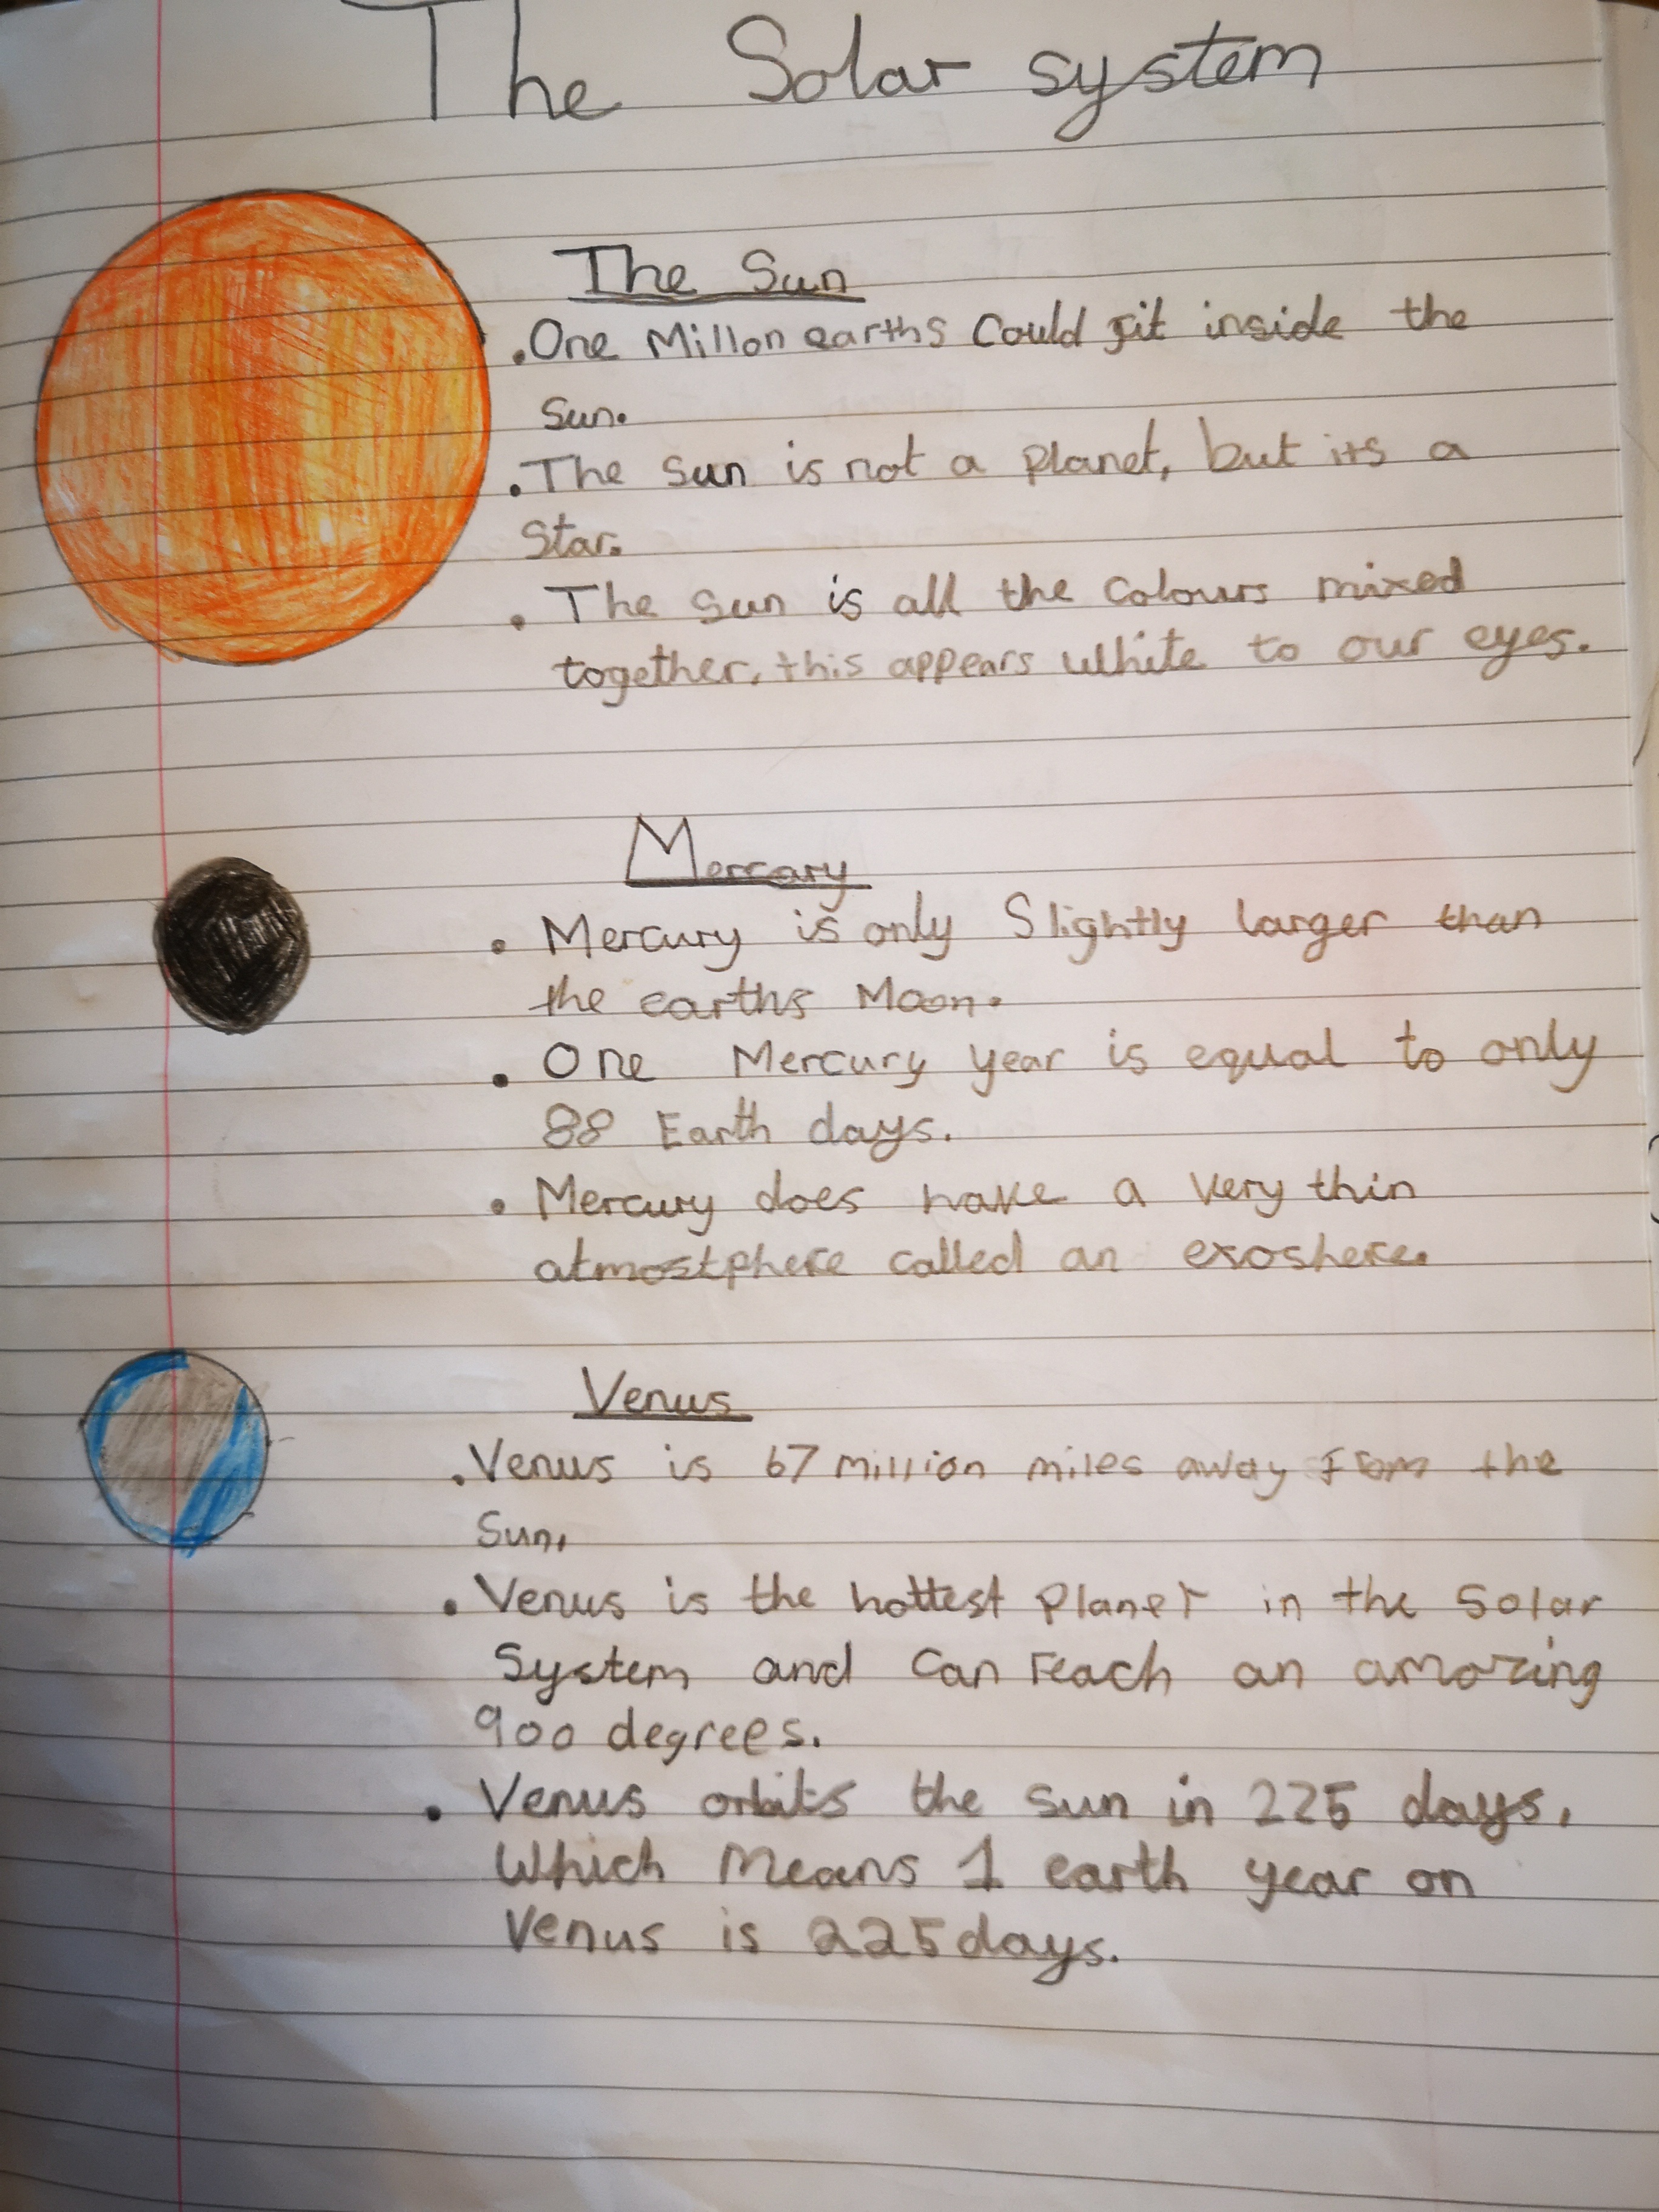 The Solar system
The Sun
.One Millon earths Could fit inside the
Sun.
.The Sun is not a Planet, but its a
Star.
. The Sun is all the Colours mixed
together, this appears white to our eyes.
Mercury
. Mercury is only Slightly larger than
the earths Moon.
. One Mercury year is equal to only
88 Earth days.
. Mercury does have a very thin
atmostphere called an exoshere.
Venus
.Venus is 67 million miles away from the
Sun.
. Venus is the hottest Planet in the Solar
System and Can reach an amazing
900 degrees.
. Venus orbits the Sun in 225 days,
Which Means 1 earth year on
Venus is 225 days.